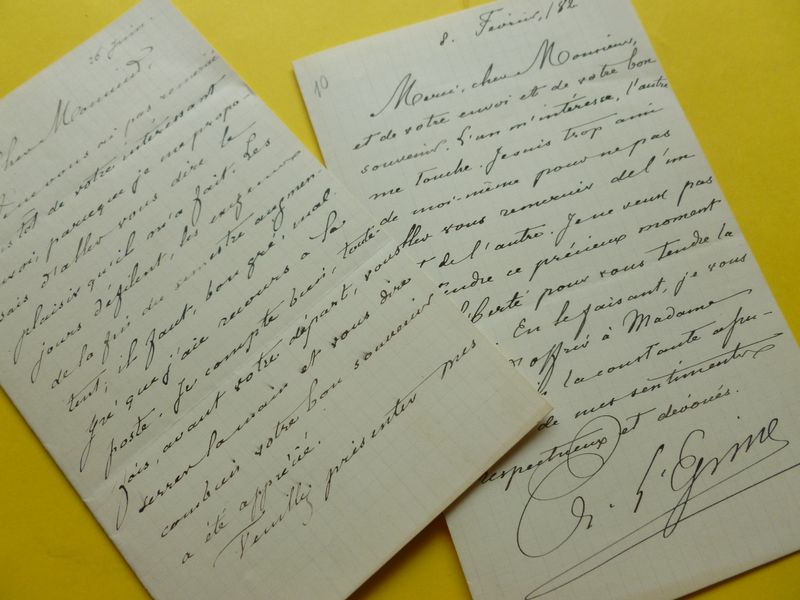 26 Juin
Cher Monsieur,
Je ne vous ai pas remercié
plus tôt de votre intéressant
envoi, parceque je me propo-
sais d'aller vous dire le
plaisir qu'il m'a fait. Les
jours défilent, les exigences
de la fin du semestre augmen-
tent; il faut, bon gré, mal
gré que j'aie recours à la
poste. Je compte bien, toute-
fois, avant votre départ, vous
serrer la main et vous dire
combien votre bon souvenir
a été apprécié.
Veuillez présenter mes
8. Février, /82
10
Merci, cher Monsieur,
et de votre envoi et de votre bon
souvenir. L'un m'intéresse, l'autre
me touche. Je suis trop ami
de moi-même pour ne pas
aller vous remercier de l'un
et de l'autre. Je ne veux pas
attendre ce précieux moment
liberté pour vous tendre la
En le faisant, je vous
offrir à Madame
la constante
de mes sentiments
respectueux et dévoués.